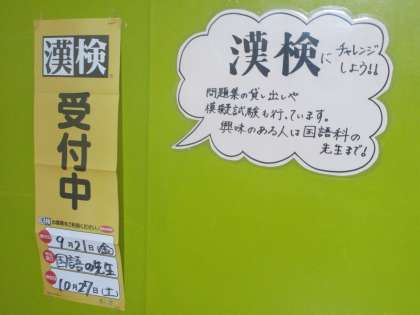 漢検
受付中
9月21日(金)
国語の先生
10月27日(土)
漢検にチャレンジ
しよう!!
問題集の貸し出しや
模擬試験も行っています。
興味のある人は国語科の
先生まで!